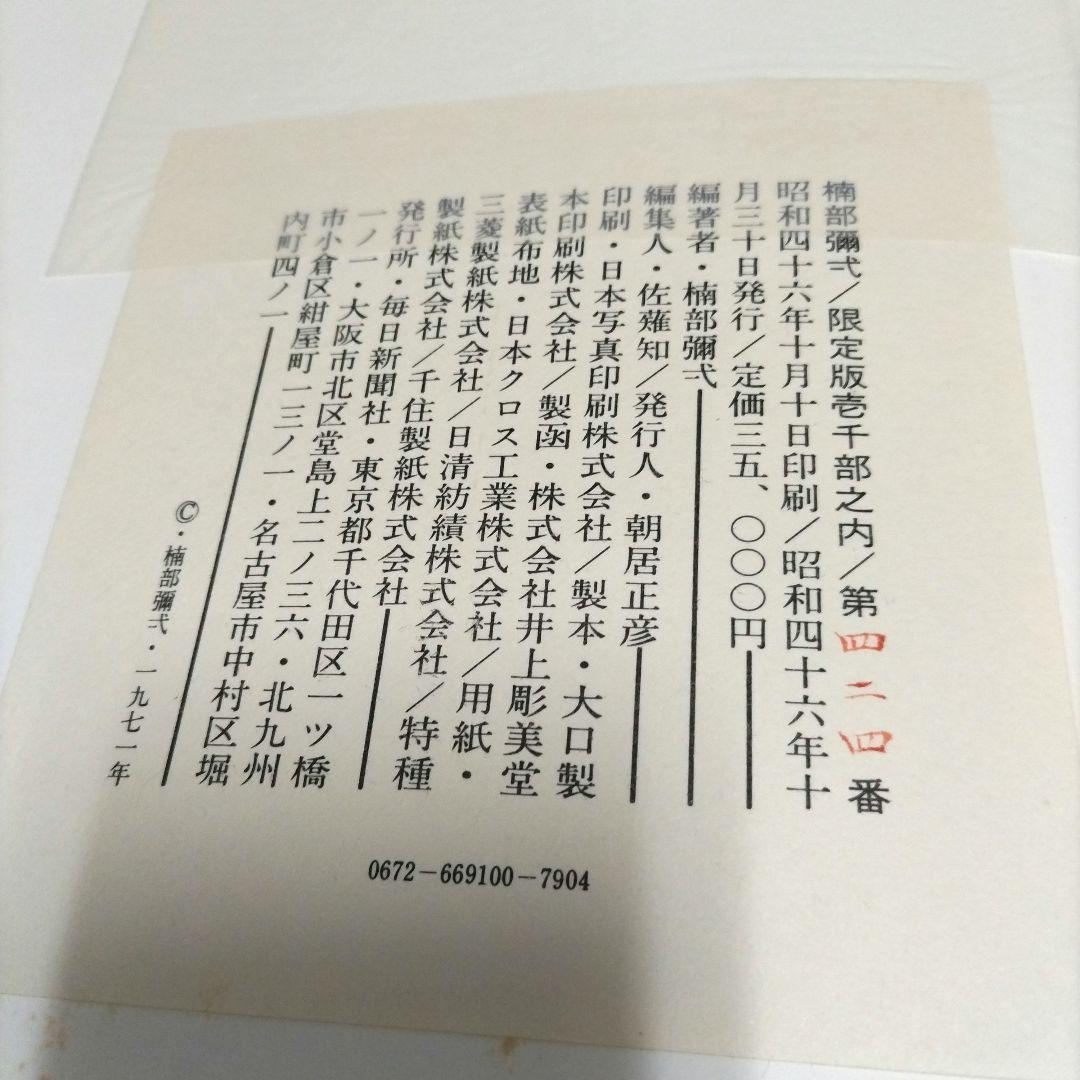 楠部彌弌/限定版壱千部之内/第四二四番
昭和四十六年十月十日印刷/昭和四十六年十
月三十日発行/定価三五、〇〇〇円
編著者・楠部彌弌
編集人・佐薙知/発行人・朝居正彦
印刷・日本写真印刷株式会社/製本・大口製
本印刷株式会社/製函・株式会社井上彫美堂
表紙布地・日本クロス工業株式会社/用紙・
三菱製紙株式会社/日清紡績株式会社/特種
製紙株式会社/千住製紙株式会社
発行所・毎日新聞社・東京都千代田区一ツ橋
一ノ一・大阪市北区堂島上二ノ三六・北九州
市小倉区紺屋町一三ノ一・名古屋市中村区堀
内町四ノ一
©・楠部彌弌・一九七一年
0672-669100-7904